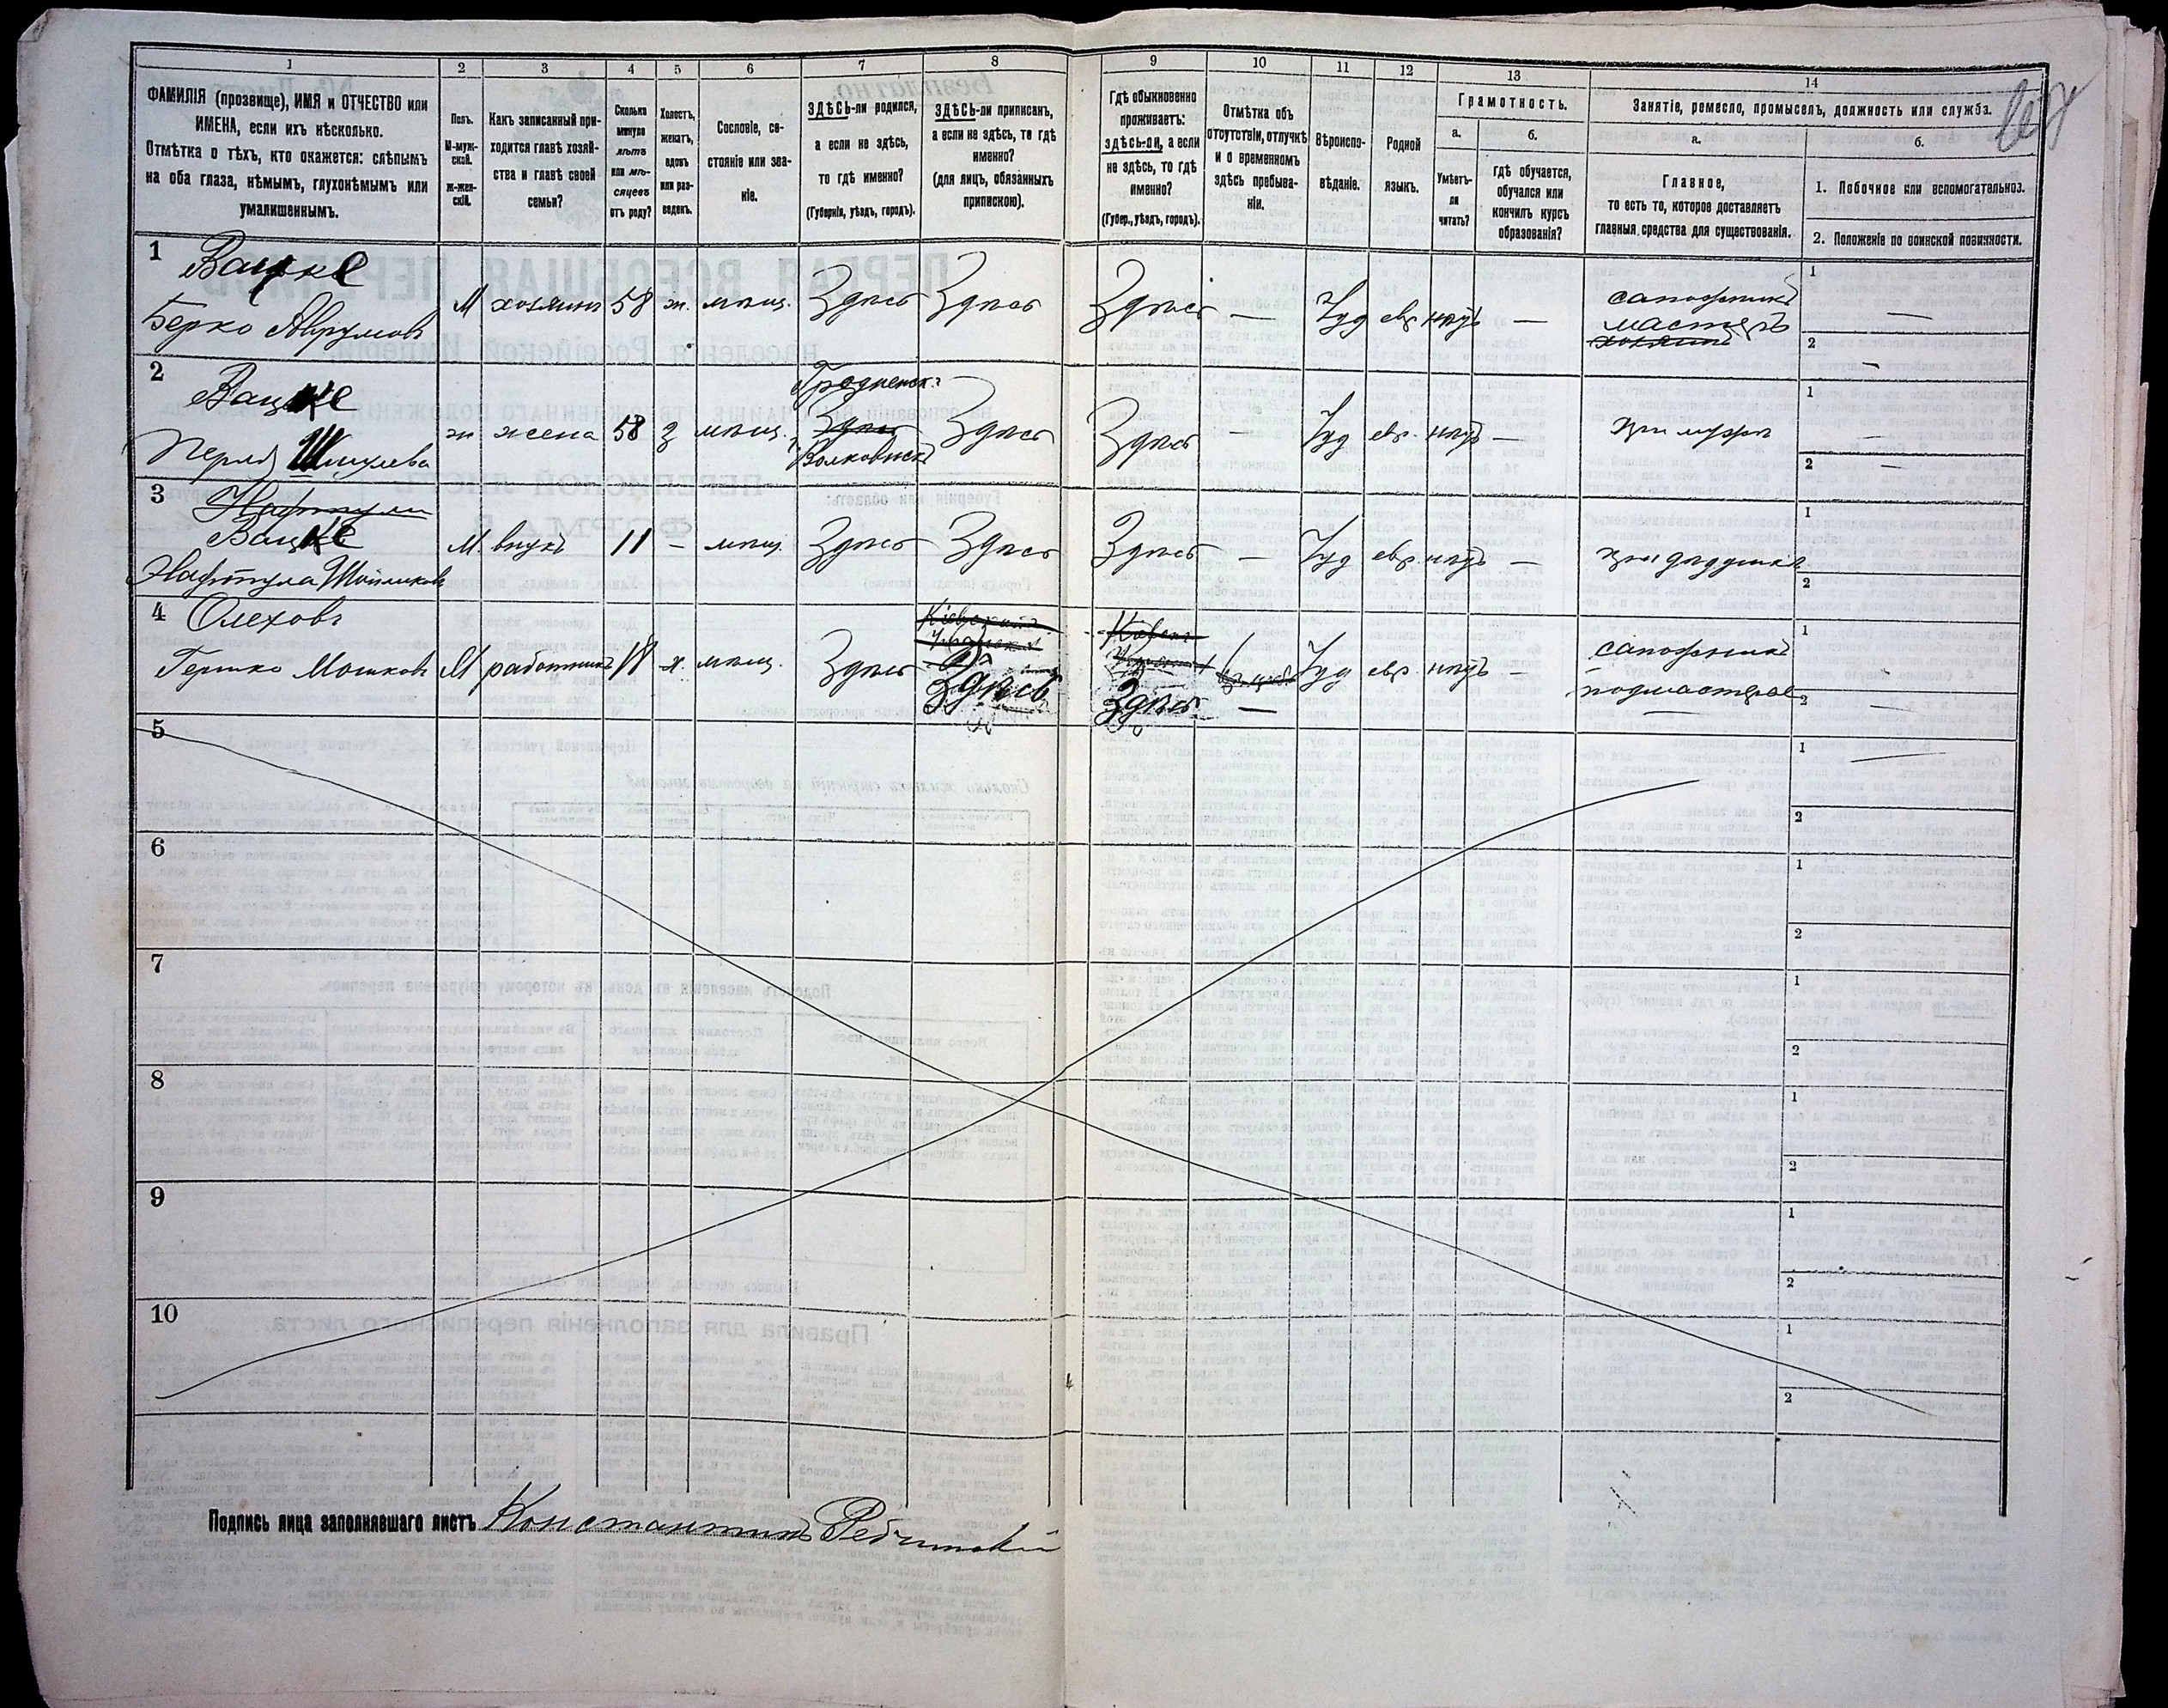 1 2 3 4 5 6 7 8 9 10 11 12 13 14
ФАМИЛІЯ (прозвище), ИМЯ и ОТЧЕСТВО или
ИМЕНА, если ихъ нѣсколько.
Отмѣтка о тѣхъ, кто окажется: слѣпымъ
на оба глаза, нѣмымъ, глухонѣмымъ или
умалишеннымъ.
Полъ.
М-муж-
ской.
Ж-жен-
скій.
Какъ записанный при-
ходится главѣ хозяй-
ства и главѣ своей
семьи?
Сколько
минуло
лѣтъ
или мѣ-
сяцевъ
отъ роду?
Холостъ,
женатъ,
вдовъ
или раз-
веденъ.
Сословіе, со-
стояніе или зва-
ніе.
ЗДѢСЬ-ли родился,
а если не здѣсь,
то гдѣ именно?
(Губернія, уѣздъ, городъ).
ЗДѢСЬ-ли приписанъ,
а если не здѣсь, то гдѣ
именно?
(для лицъ, обязанныхъ
припискою).
Гдѣ обыкновенно
проживаетъ:
здѣсь-ли, а если
не здѣсь, то гдѣ
именно?
(Губер., уѣздъ, городъ).
Отмѣтка объ
отсутствіи, отлучкѣ
и о временномъ
здѣсь пребыва-
ніи.
Вѣроиспо-
вѣданіе.
Родной
языкъ.
Грамотность.
а.
Умѣетъ-
ли
читать?
б.
гдѣ обучается,
обучался или
кончилъ курсъ
образованія?
Занятіе, ремесло, промыселъ, должность или служба.
а.
Главное,
то есть то, которое доставляетъ
главныя средства для существованія.
б.
1. Побочное или вспомогательноз.
2. Положеніе по воинской повинности.
1 Вацке
Берко Аврумовъ
М хозяинъ 58 ж. мѣщ. Здѣсь Здѣсь Здѣсь — Іуд евр нѣтъ —
сапожникъ
мастеръ
хозяинъ
1 —
2 —
2 Вацке
Перля Шмулева
ж жена 58 з мѣщ.
Гродненск.
Здѣсь
Волковискъ
Здѣсь Здѣсь — Іуд евр. нѣтъ — при мужѣ
1 —
2 —
3 Нафтули
Вацке
Нафтула Шойликовъ
М. внукъ 11 – мѣщ. Здѣсь Здѣсь Здѣсь — Іуд евр. нѣтъ — при дѣдушкѣ
1
2
4 Олеховъ
Гершко Мошковъ
М работникъ х. мѣщ. Здѣсь
Здѣсь
Здѣсь
—
Іуд евр нѣтъ –
сапожникъ
подмастерье
1
2 —
5
1 —
2
6
1
2
7
1
2
8
1
2
9
1
2
10
1
2
Подпись лица заполнявшаго листъ Константинъ